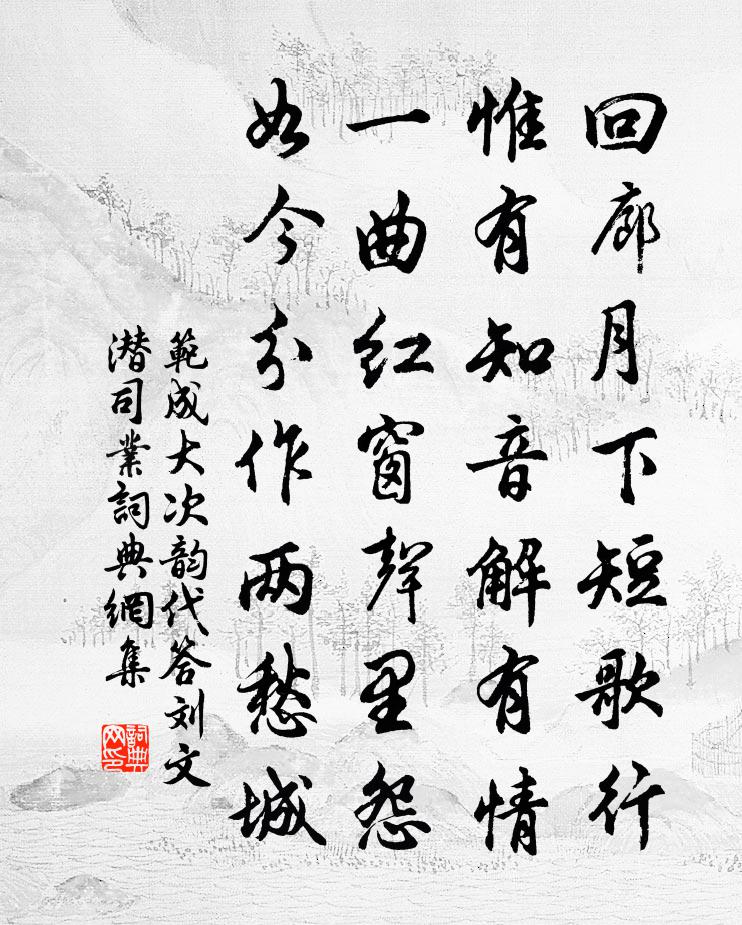 回廊月下短歌行
惟有知音解有情
一曲红窗声里怨
如今分作两愁城
範成大次韵代答刘文
潜司業詞典網集
詞典
网印